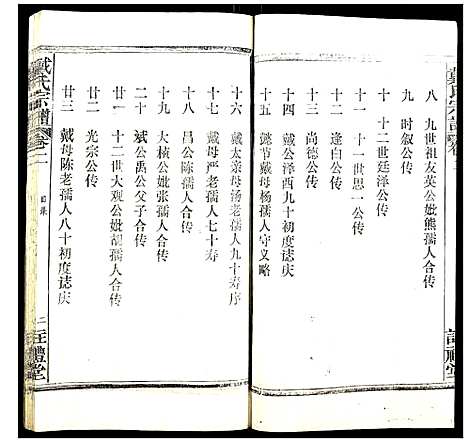 戴氏宗譜卷二
八 九世祖友英公妣熊孺人合传
九 时叙公传
十 十二世廷泽公传
十一 十一世思一公传
十二 逢白公传
十三 尚德公传
十四 戴公泽西九十初度誌庆
十五 懿节戴母杨孺人守义略
十六 戴太亲母汤老孺人九十寿序
十七 戴母严老孺人七十寿
十八 昌公陈孺人合传
十九 大核公妣张孺人合传
二十 斌公禹公父子合传
廿一 十二世大观公妣胡孺人合传
廿二 光宗公传
廿三 戴母陈老孺人八十初度誌庆
戴氏宗譜卷二
目录
二
註禮堂